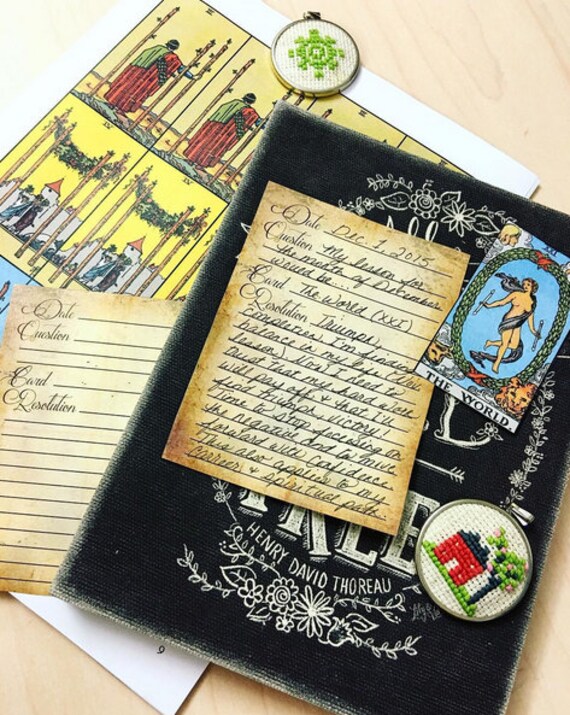 Date Dec. 1, 2015
Question My lesson for
the month of December
would be...
Card The World (XXI)
Resolution Triumph,
completion. I'm finding
balance in my life (this
lesson). Now I need to
trust that my hard work
will pay off & that I'll
find triumph, victory.
Time to stop focusing on
the negative and to move
forward with confidence.
This also applies to my
career & spiritual path.
Date
Question
Card
Resolution
THE WORLD.
All
FREE
HENRY DAVID THOREAU
9